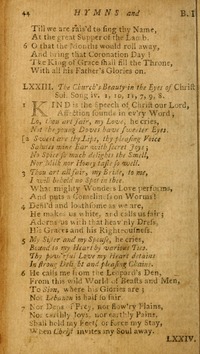 44 HYMNS and B. I
Till we are rais'd to sing thy Name,
At the great Supper of the Lamb.
6 O that the Months would roll away,
And bring that Coronation Day!
The King of Grace shall fill the Throne,
With all his Father's Glories on.
LXXIII. The Church's Beauty in the Eyes of Christ
Sol. Song iv. 1, 10, 11, 7, 9, 8.
1 KIND is the Speech of Christ our Lord,
Affection sounds in ev'ry Word;
Lo, thou art fair, my Love, he cries,
Not the young Doves have sweeter Eyes.
2 Sweet are thy Lips, thy pleasing Voice
Salutes mine Ear with secret Joys;
No Spice so much delights the Smell,
Nor Milk nor Honey taste so well.
3 Thou art all fair, my Bride, to me,
I will behold no Spot in thee.
What mighty Wonders Love performs,
And puts a Comeliness on Worms!
4 Defil'd and loathsome as we are,
He makes us white, and calls us fair;
Adorns us with that heav'nly Dress,
His Graces and his Righteousness.
5 My Sister and my Spouse, he cries,
Bound to my Heart by various Ties,
Thy pow'rful Love my Heart detains
In strong Delight and pleasing Chains.
6 He calls me from the Leopard's Den,
From this wild World of Beasts and Men,
To Sion, where his Glories are;
Not Lebanon is half so fair.
Nor Dens of Prey, nor flow'ry Plains,
Nor earthly Joys, nor earthly Pains,
Shall hold my Feet, or force my Stay,
When Christ invites my Soul away.
LXXIV.